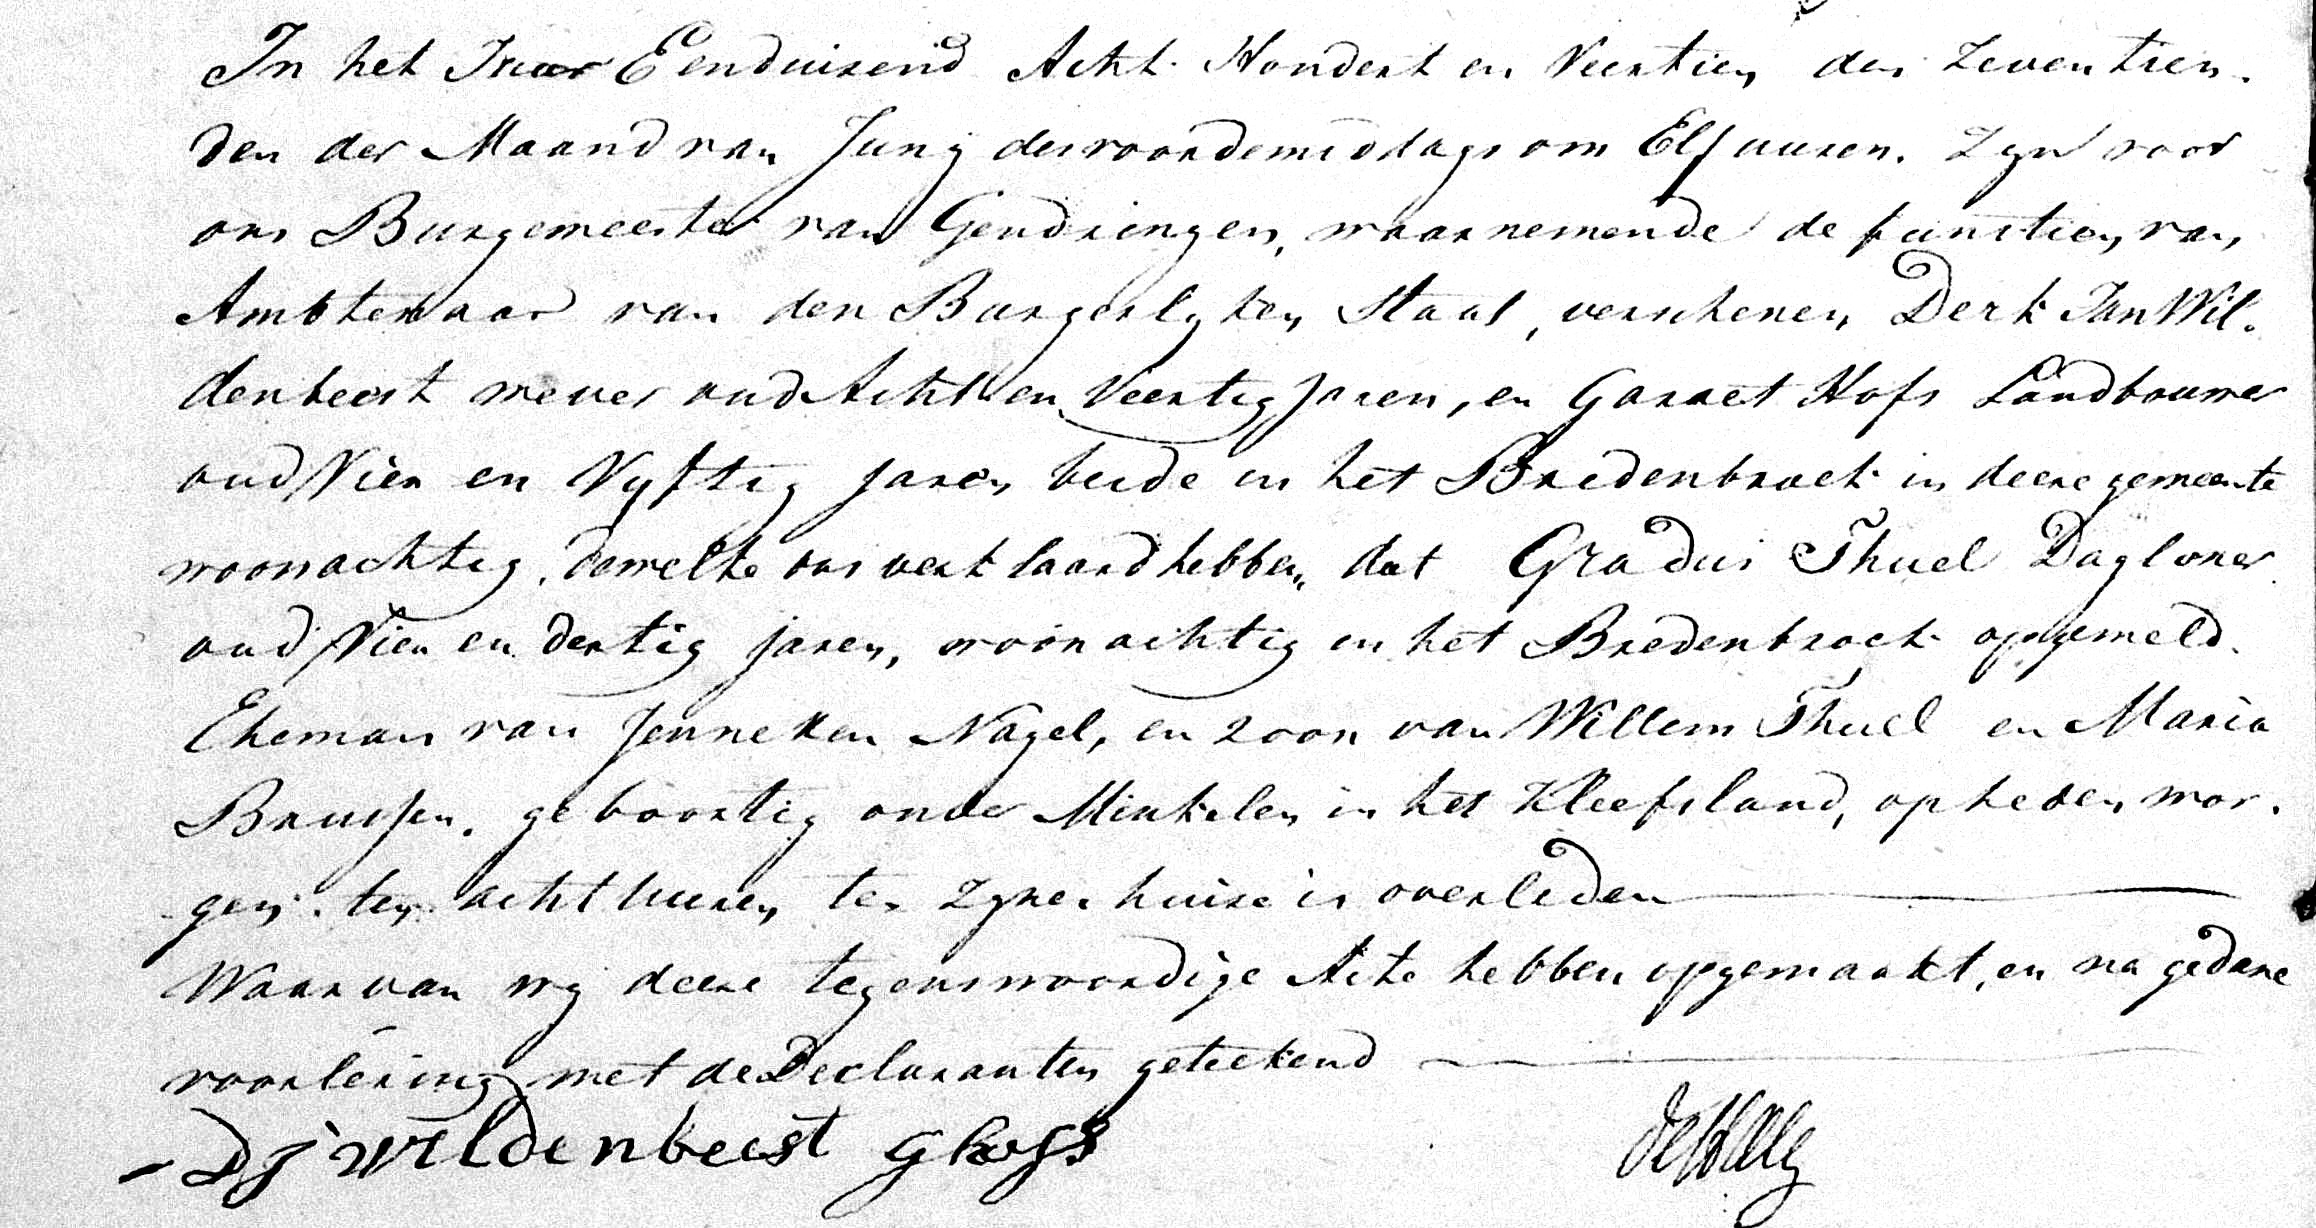 In het Jaar Eenduizend Acht Hondert en Veertien den Zeventien-
den der Maand van Juny des voordemiddags om Elf uuren. Zyn voor
ons Burgemeester van Gendringen, waarnemende de functien van
Ambtenaar van den Burgerlyken Staat, verschenen Derk Jan Wil-
denbeest wever oud Acht en Veertig Jaren, en Garret Hofs Landbouwer
oud Vier en Vyftig jaren beide in het Bredenbroek in deeze gemeente
woonachtig, dewelke ons verklaard hebben, dat Gradus Thuel Dagloner
oud Vier en dertig jaren, woonachtig in het Bredenbroek opgemeld.
Eheman van Jenneken Nagel, en zoon van Willem Thuel en Maria
Brussen. geboortig onder Minkelen in het Kleefsland, op heden mor-
gen ten acht uuren ten zynen huize is overleden
Waarvan wy deeze tegenswoordige Acte hebben opgemaakt, en na gedane
voorlezing met de Declaranten geteekend
DJ wildenbeest G hofs